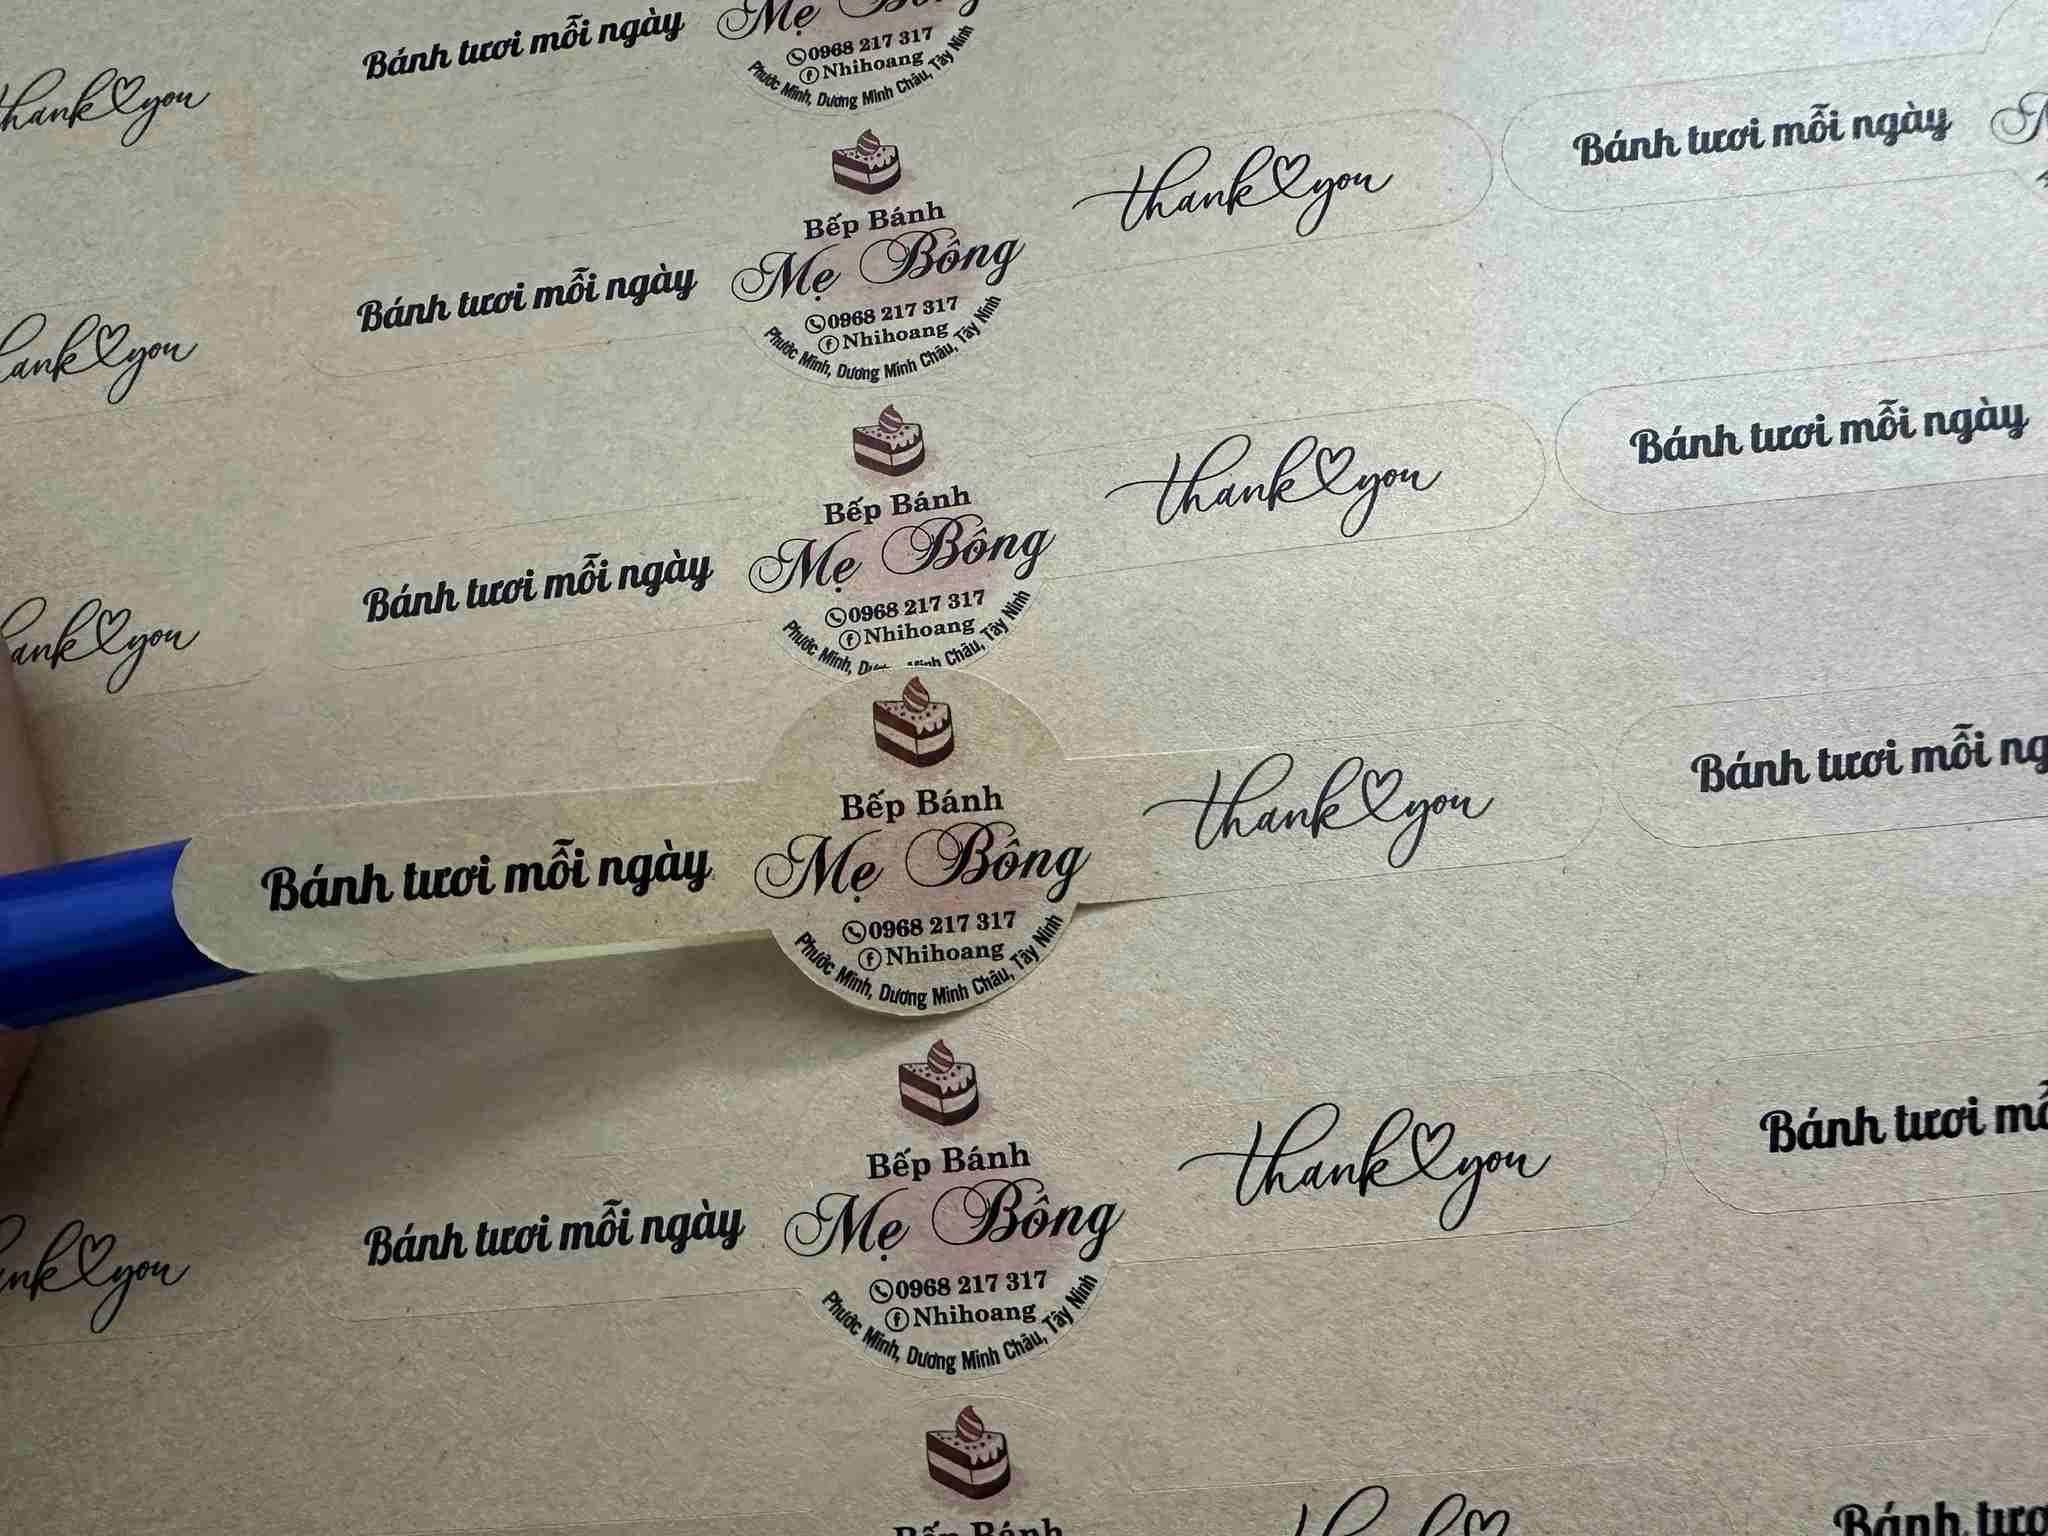 Bánh tươi mỗi ngày
Mẹ Bông
0968 217 317
Nhihoang
Phước Minh, Dương Minh Châu, Tây Ninh
thank you
Bánh tươi mỗi ngày
Bếp Bánh
Mẹ Bông
0968 217 317
Nhihoang
Phước Minh, Dương Minh Châu, Tây Ninh
thank you
Bánh tươi mỗi ngày
thank you
Bánh tươi mỗi ngày
Bếp Bánh
Mẹ Bông
0968 217 317
Nhihoang
Phước Minh, Minh Châu, Tây Ninh
thank you
Bánh tươi mỗi ngày
thank you
Bánh tươi mỗi ngày
Bếp Bánh
Mẹ Bông
0968 217 317
Nhihoang
Phước Minh, Dương Minh Châu, Tây Ninh
thank you
Bánh tươi mỗi ng
Bánh tươi mỗi ngày
Bếp Bánh
Mẹ Bông
0968 217 317
Nhihoang
Phước Minh, Dương Minh Châu, Tây Ninh
thank you
Bánh tươi
you
Bếp Bánh
Bánh